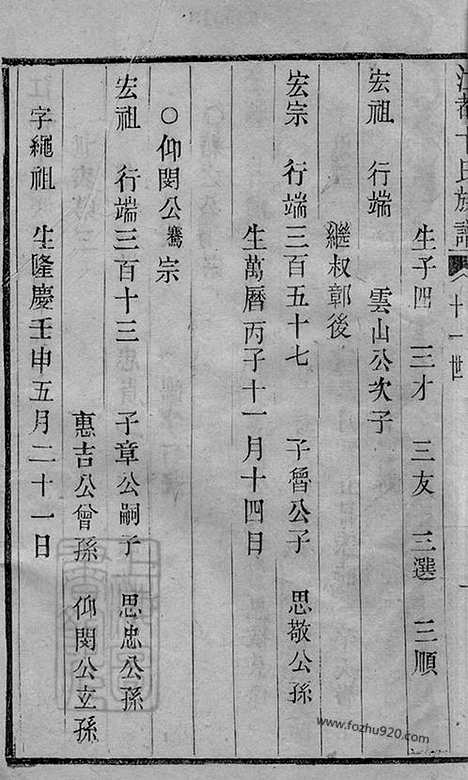 氏族譜 十一世
生子四 三才 三友 三選 三順
宏祖 行端 雲山公次子
繼叔郭後
宏宗 行端三百五十七 子魯公子 思敬公孫
生萬曆丙子十一月十四日
○仰閔公騫宗
宏祖 行端三百十三 子章公嗣子 思忠公孫
惠吉公曾孫 仰閔公立孫
字繩祖 生隆慶壬申五月二十一日
www.fozhu920.com